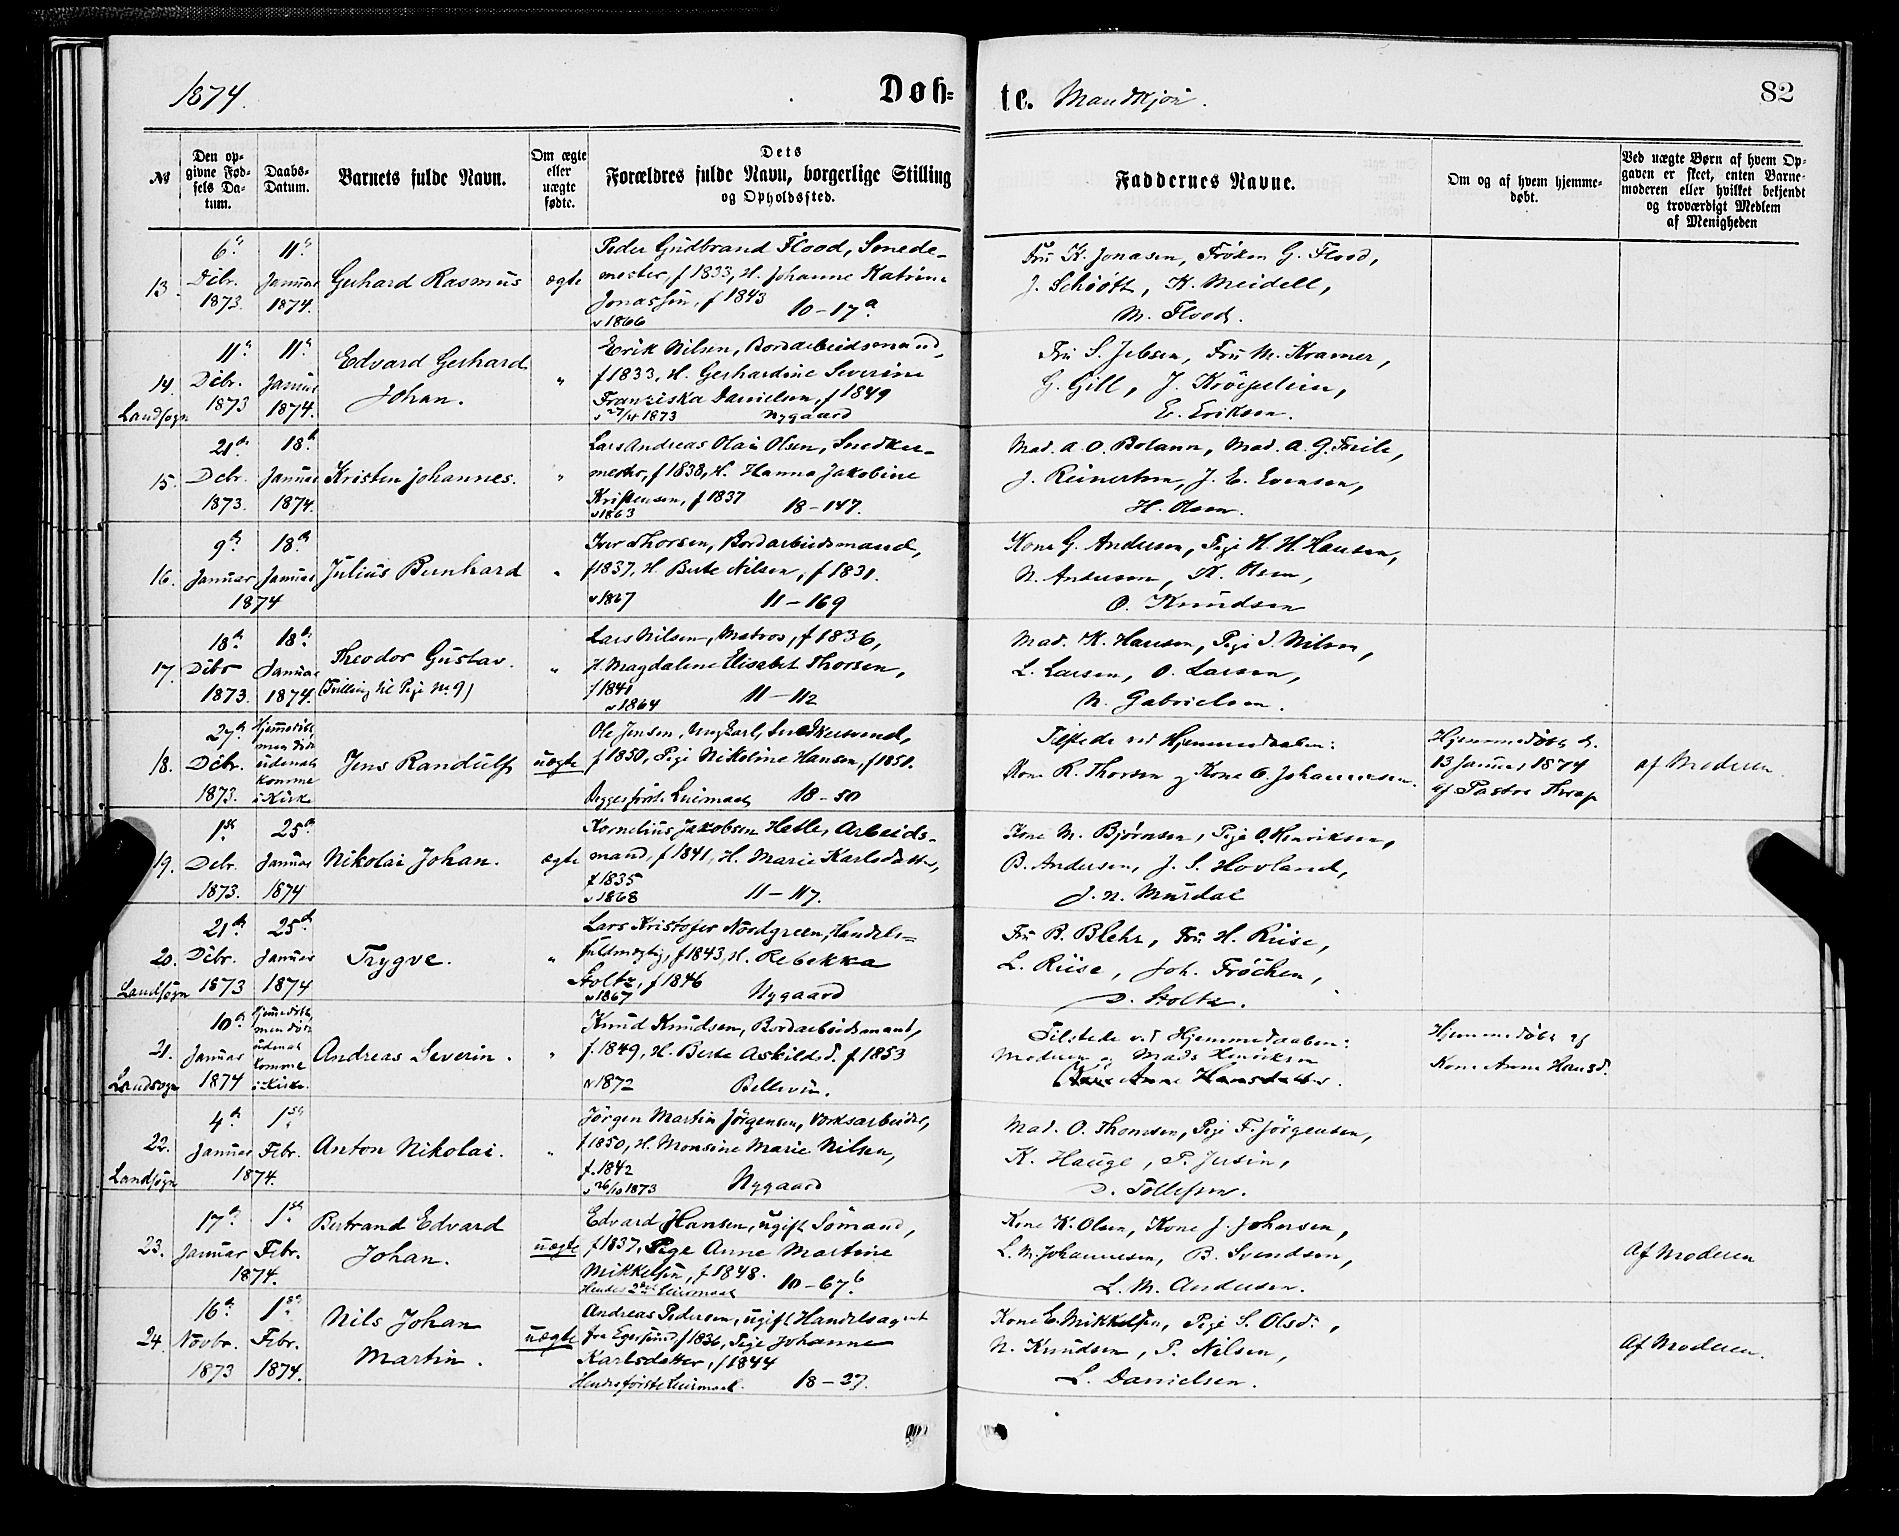 1874.
Døb=
te. Mandkjøn.
82
No
Den op-
givne Fød-
sels Da-
tum.
Daabs-
Datum.
Barnets fulde Navn.
Om ægte
eller
uægte
fødte.
Dets
Forældres fulde Navn, borgerlige Stilling
og Opholdssted.
Faddernes Navne.
Om og af hvem hjemme-
døbt.
Ved uægte Børn af hvem Op-
gaven er skeet, enten Barne-
moderen eller hvilket bekjendt
og troværdigt Medlem
af Menigheden
13.
6te
Debr.
1873.
11te
Januar
1874.
Gerhard Rasmus
ægte
Peder Gudbrand Flood, Smede-
mester, f 1833, H. Johanne Katrine
Jonassen, f 1843
v 1866 10-17a
Fru K. Jonasen, Frøken G. Flood,
J. Schiøtt, K. Meidell,
M. Flood.
14.
Landsogn
11te
Debr.
1873
11te
Januar
1874.
Edvard Gerhard
Johan.
"
Erik Nilsen, Bordarbeidsmand,
f 1833, H. Gerhardine Severine
Franziska Danielsen, f 1849
v 27/4 1873 Nygaard
Fru S. Jebsen, Fru M. Kramer,
G. Gill, J. Krøepelien,
E. Eriksen.
15.
21de
Debr.
1873.
18de
Januar
1874.
Kristen Johannes.
"
Lars Andreas Olai Olsen, Snedker-
mester, f 1838, H. Hanna Jakobine
Kristensen, f 1837
v 1863 18-147.
Mad. A. O. Botann, Mad. A. G. Friile,
J. Reinertsen, J. E. Evensen,
H. Olsen.
16.
9de
Januar
18de
Januar
1874
Julius Bernhard
"
Iver Thorsen, Bordarbeidsmand,
f 1837, H. Berte Nilsen, f 1831.
v 1867 11-169
Kone G. Andersen, Pige H. H. Hansen,
N. Andersen, K. Olsen,
O. Knudsen
17.
18de
Debr
1873.
18de
Januar
1874.
Theodor Gustav.
(Tvilling til Pige No. 9)
"
Lars Nilsen, Matros, f 1836,
H. Magdalene Elisabet Thorsen,
f 1841
v 1864 11-112
Mad. K. Hansen, Pige I. Nilsen,
L. Larsen, O. Larsen,
N. Gabrielsen.
18.
27de
Debr.
1873.
Hjemmedøbt,
men døde
udenat
komme
i Kirke
Jens Randulf
uægte
Ole Jensen, Ungkarl, Snedkersvend,
f 1850, Pige Nikoline Hansen, f 1851.
Begges første Leiermaal 18-50
Tilstede ved Hjemmedaaben:
Kone R. Thorsen og Kone O. Johannesen.
Hjemmedøbt d.
13 Januar 1874
af Pastor Krap
af Moderen.
19.
1ste
Debr.
1873.
25de
Januar
1874
Nikolai Johan.
ægte
Kornelius Jakobsen Hetle, Arbeids-
mand, f 1841, H. Marie Karlsdatter,
f 1835
v 1868 11-117.
Kone M. Bjørnsen, Pige O. Henriksen,
B. Andersen, J. S. Hovland,
J. N. Murdal
20.
Landsogn
21de
Debr.
1873
25de
Januar
1874
Trygve.
"
Lars Kristofer Nordgreen, Handels=
fuldmægtig, f 1843, H. Rebekka
Stoltz, f 1846
v 1867 Nygaard
Fru B. Blehr, Fru H. Riise,
L. Riise, Joh. Frøchen,
D. Stoltz.
21.
Landsogn
10de
Januar
1874
Hjemmedøbt,
men døde
udenat
komme
i Kirke.
Andreas Severin.
"
Knud Knudsen, Bordarbeidsmand,
f. 1849, H. Berte Askildsd. f 1853
v 1872 Bellevue.
Tilstede ved Hjemmedaaben:
Moderen og Mads Henriksen
Kone Anne Hansdatter.
Hjemmedøbt af
Kone Anne Hansd.
22.
Landsogn
4de
Januar
1ste
Febr.
1874.
Anton Nikolai.
"
Jørgen Martin Jørgensen, Værksarbeider,
f 1850, H. Monsine Marie Nilsen,
f. 1842
v 26/10 1873 Nygaard
Mad. O. Thomsen, Pige F. Jørgensen,
K. Hauge, P. Jusin,
D. Tollefsen.
23.
17de
Januar
1ste
Febr.
1874.
Bertrand Edvard
Johan.
uægte
Edvard Hansen, ugift Sømand,
f 1837, Pige Anne Martine
Mikkelsen, f 1848.
Hendes 2det Leiermaal 10-67b
Kone K. Olsen, Kone J. Johnsen,
L. M. Johannesen, B. Svendsen,
L. M. Andersen.
Af Moderen
24.
16de
Novbr.
1873
1ste
Febr.
1874.
Nils Johan
Martin.
uægte
Andreas Pedersen, ugift Handelsagent
fra Egersund f 1836, Pige Johanne
Karlsdatter, f 1844
Hendes første Leiermaal. 18-27.
Kone E. Mikkelsen, Pige S. Olsd.,
N. Knudsen, P. Nilsen,
L. Danielsen.
Af Moderen.